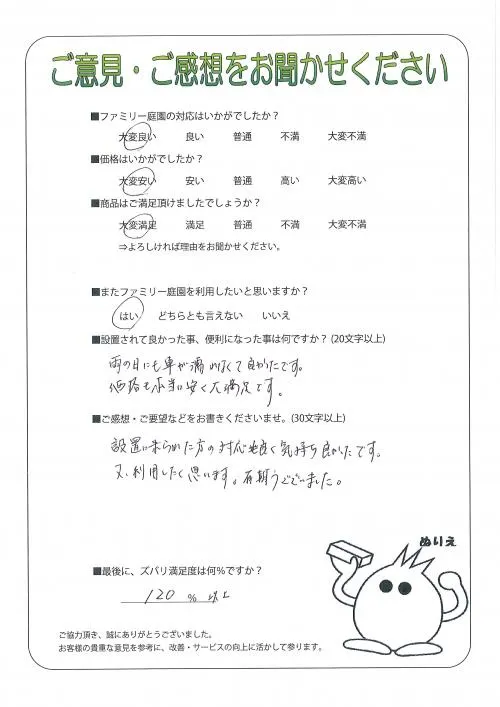 ご意見・ご感想をお聞かせください
■ファミリー庭園の対応はいかがでしたか？
大変良い 良い 普通 不満 大変不満
■価格はいかがでしたか？
大変安い 安い 普通 高い 大変高い
■商品はご満足頂けましたでしょうか？
大変満足 満足 普通 不満 大変不満
⇒よろしければ理由をお聞かせください。
■またファミリー庭園を利用したいと思いますか？
はい どちらとも言えない いいえ
■設置されて良かった事、便利になった事は何ですか？(20文字以上)
雨の日にも車が濡れなくて良かったです。
価格も本当に安く大満足です。
■ご感想・ご要望などをお書きくださいませ。(30文字以上)
設置に来られた方の対応も良く気持ち良かたです。
又、利用したく思います。有難うございました。
ぬりえ
■最後に、ズバリ満足度は何％ですか？
120 % 以上
ご協力頂き、誠にありがとうございました。
お客様の貴重な意見を参考に、改善・サービスの向上に活かして参ります。